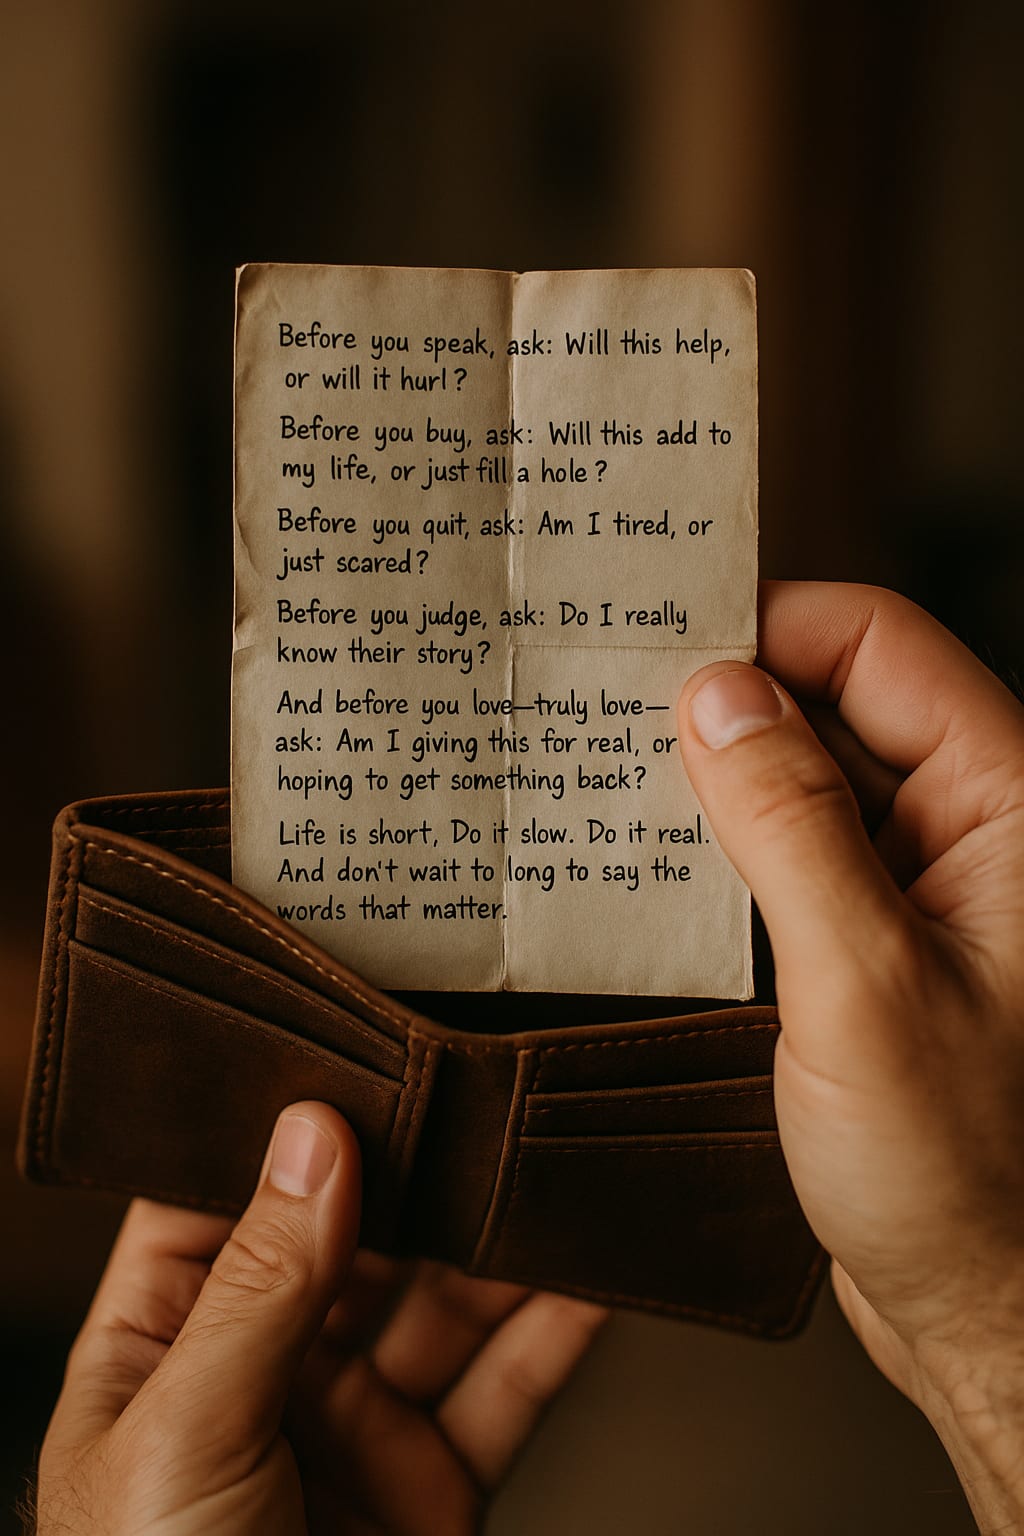 Before you speak, ask: Will this help,
or will it hurl?
Before you buy, ask: Will this add to
my life, or just fill a hole?
Before you quit, ask: Am I tired, or
just scared?
Before you judge, ask: Do I really
know their story?
And before you love—truly love—
ask: Am I giving this for real, or
hoping to get something back?
Life is short, Do it slow. Do it real.
And don't wait to long to say the
words that matter.